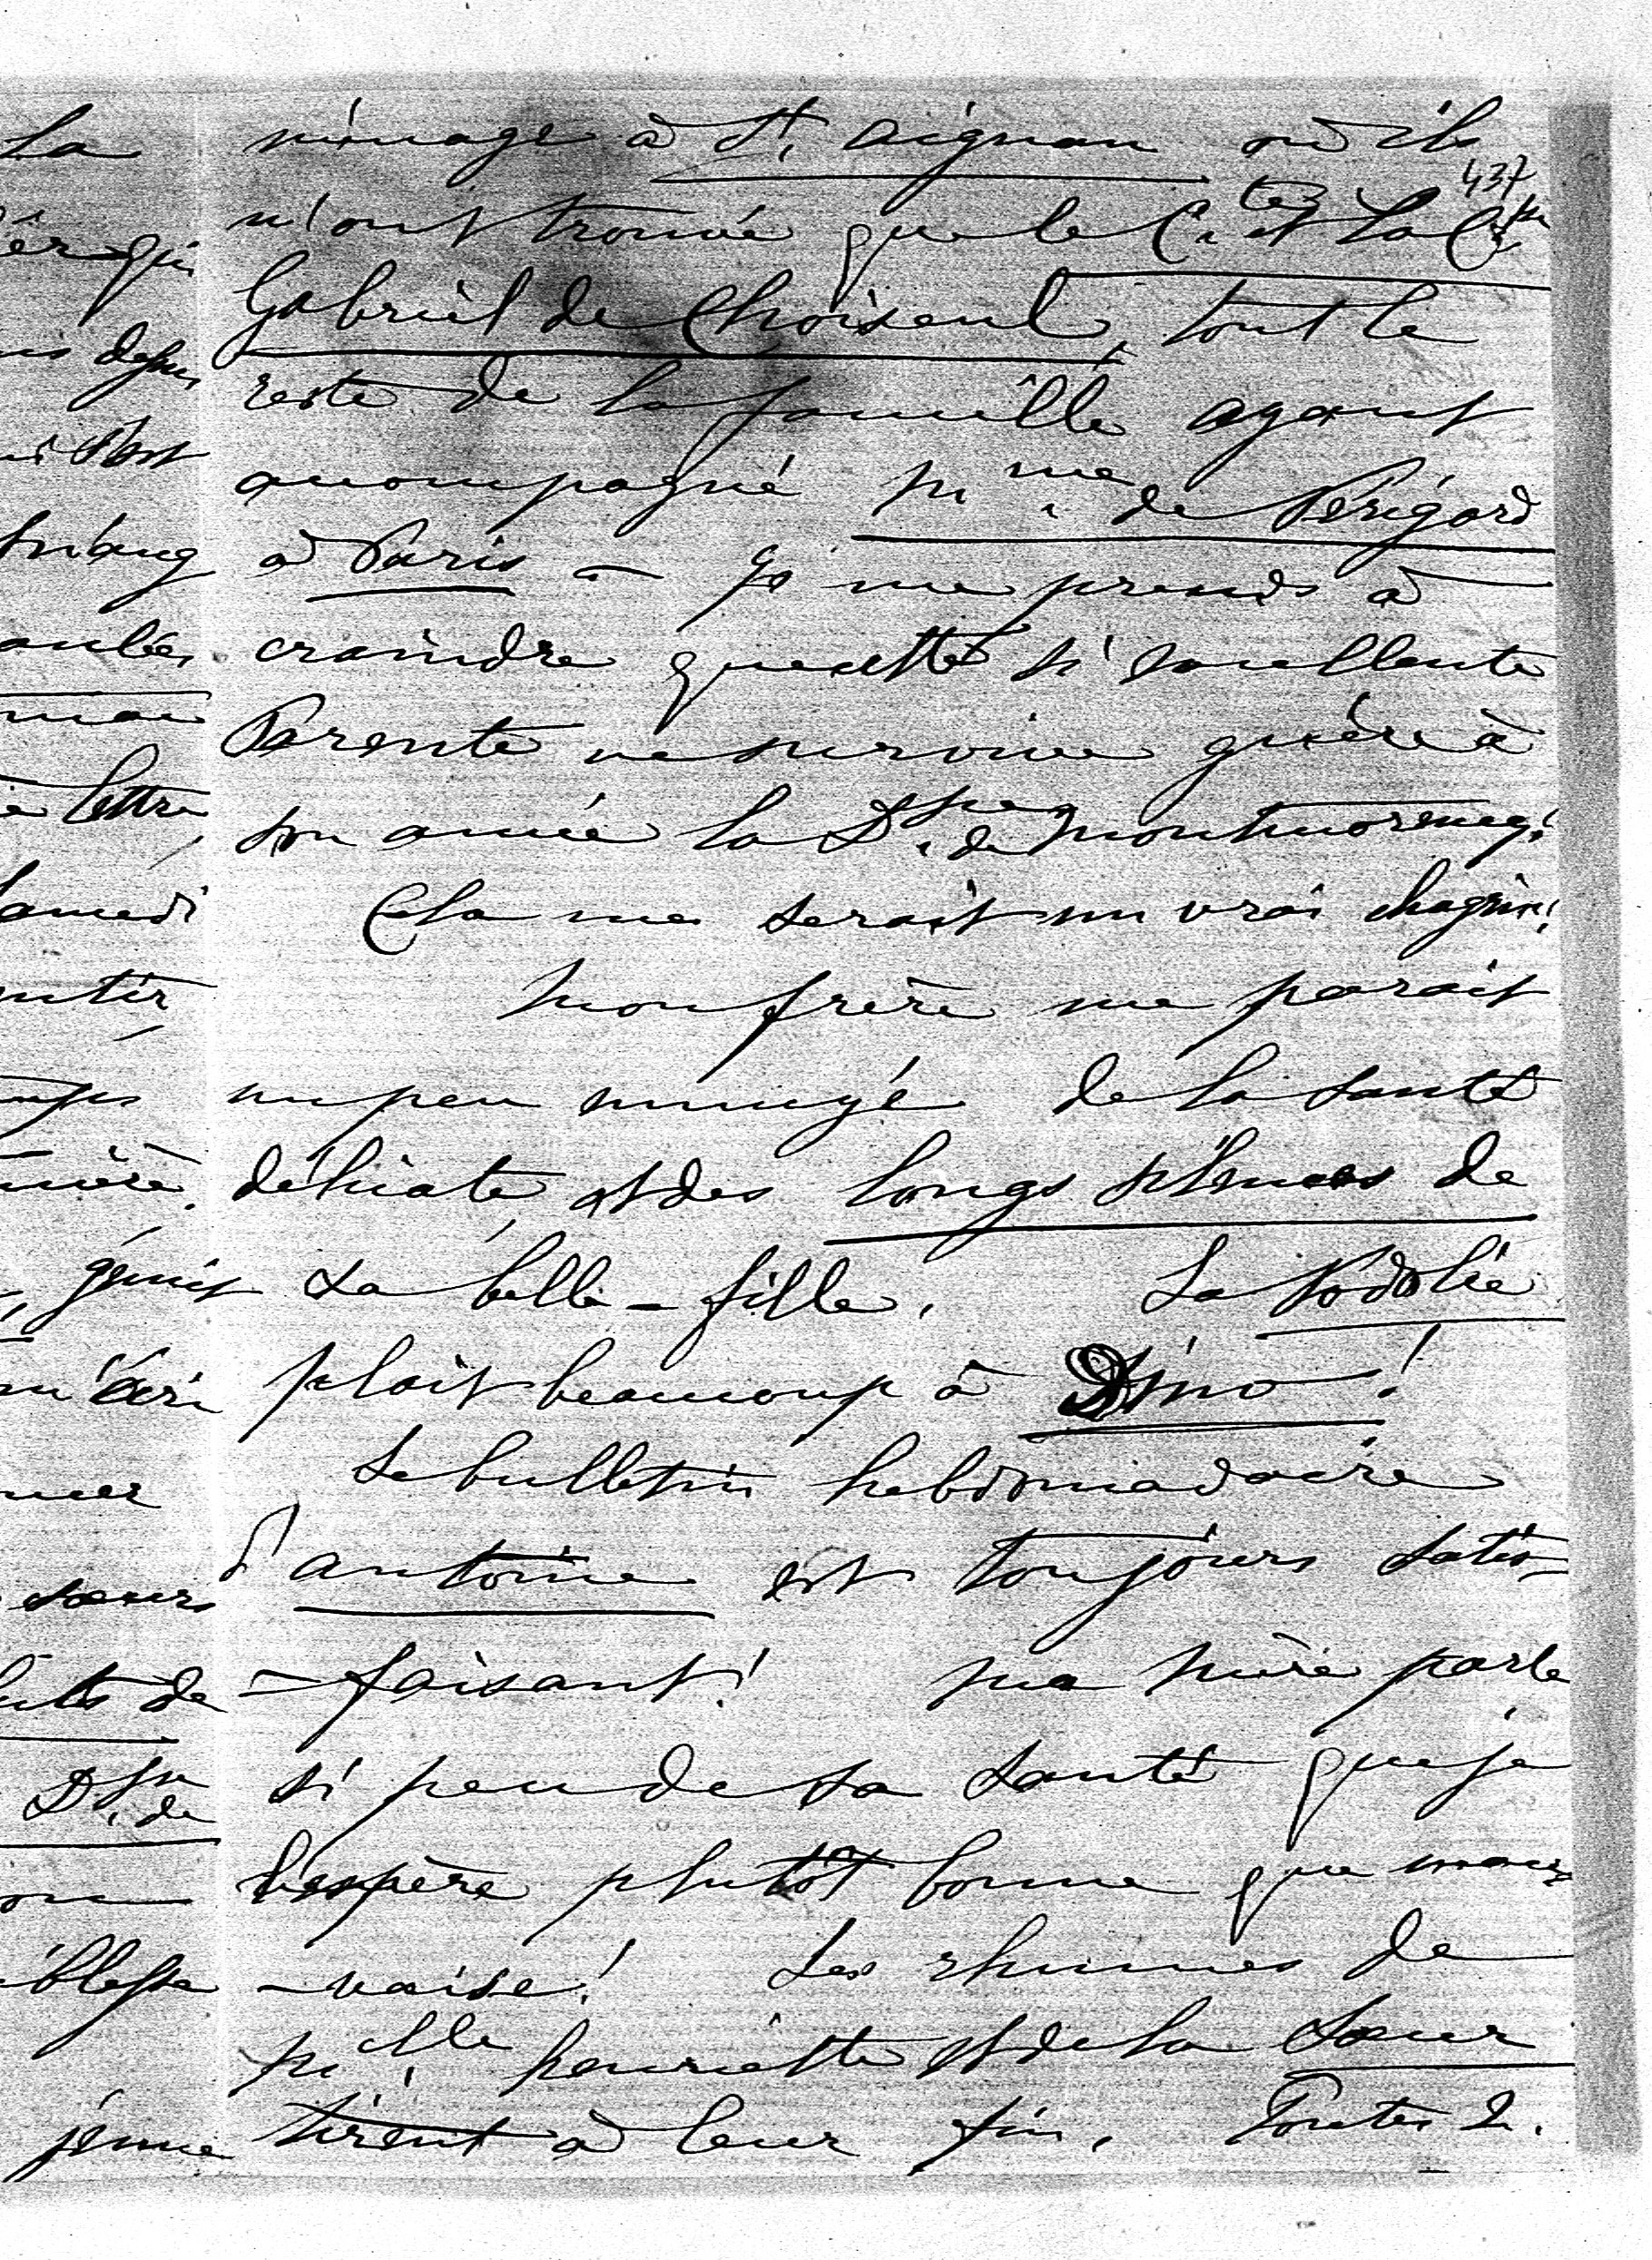 ménage à St. Aignan où ils
437
n'ont trouvé que le Cte. et la Ctsse
Gabriel de Choiseul, tout le
reste de la famille ayant
accompagné Mme. de Périgord
à Paris – Je me prends à
craindre que cette si excellente
Parente ne survive guère à
son amie la Dsse. de Montmorency!
Cela me serait un vrai chagrin!
Mon frère me parait
un peu ennuyé de la santé
délicate et des longs silences de
sa belle-fille. La Podolie
plait beaucoup à Dino!
Le bulletin hebdomadaire
d'Antoine est toujours satis-
-faisant! Ma Mère parle
si peu de sa santé que je
l'espère plutôt bonne que mau-
-vaise! Les rhumes de
Melle. henriette et de la Soeur
tirent à leur fin. Toutes 2.
La
qui
lettre
Samedi
gémit
soeurs
de
Dsse. de